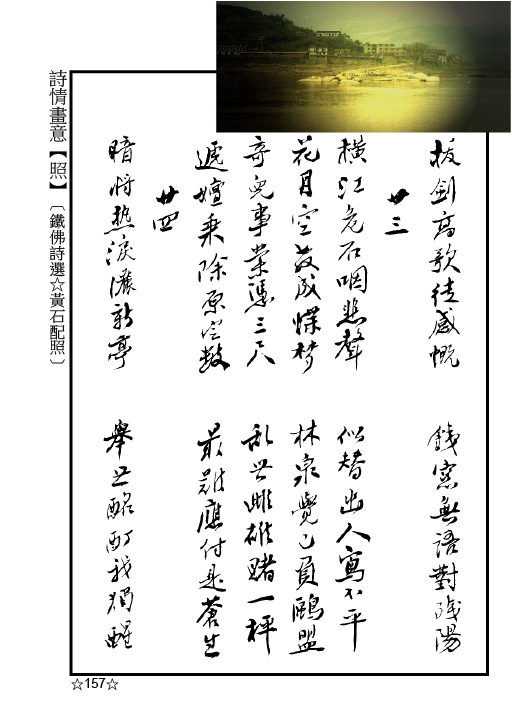 拔劍高歌徒感慨 無語對殘陽
廿三
橫江危石咽悲聲 似替人寫不平
花月空成蝶梦 林泉覺已負鷗盟
事業憑三尺 乱世雌雄賭一枰
遞嬗乘除原定數 最難應付是蒼生
廿四
暗將熱淚灑新亭 舉世酩酊我獨醒
詩情畫意【照】〔鐵佛詩選☆黃石配照〕
☆157☆